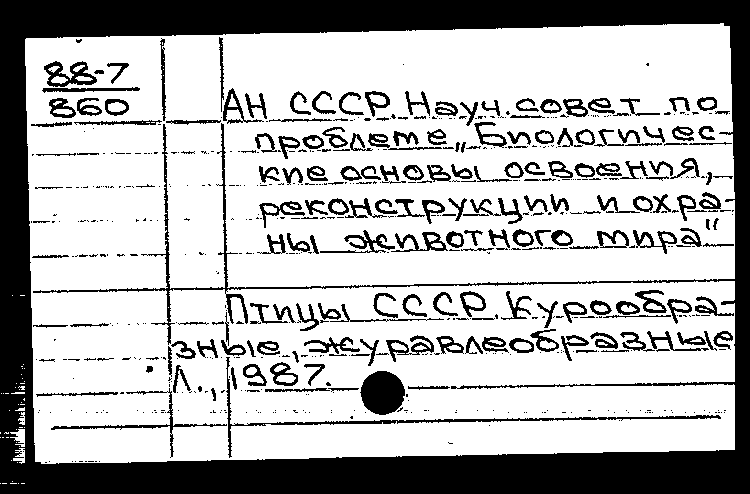 88-7
860
АН СССР. Науч. совет по
проблеме „Биологичес-
кие основы освоения,
реконструкции и охра-
ны животного мира"
Птицы СССР. Курообра-
зные, журавлеобразные
Л., 1987.